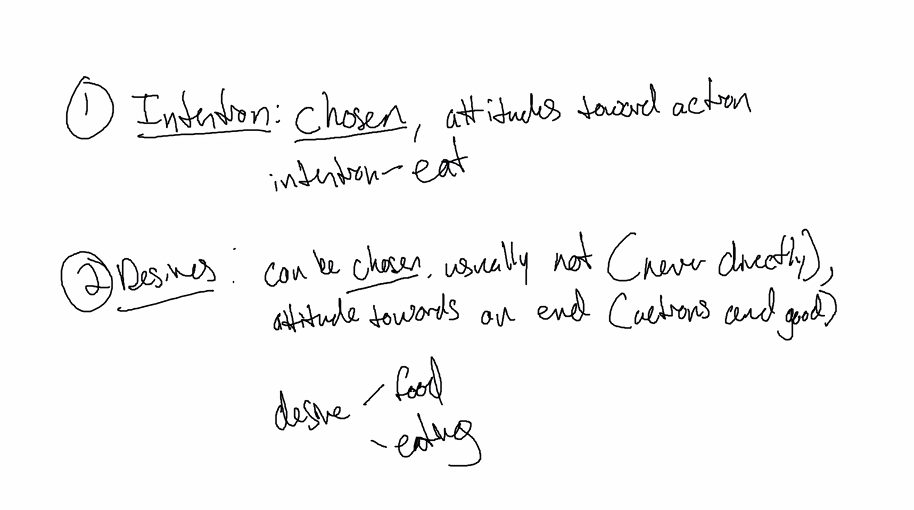 ① Intention: chosen, attitudes toward action
intention - eat
② Desires: can be chosen, usually not (never directly),
attitude towards an end (actions and good)
desire - food
- eating